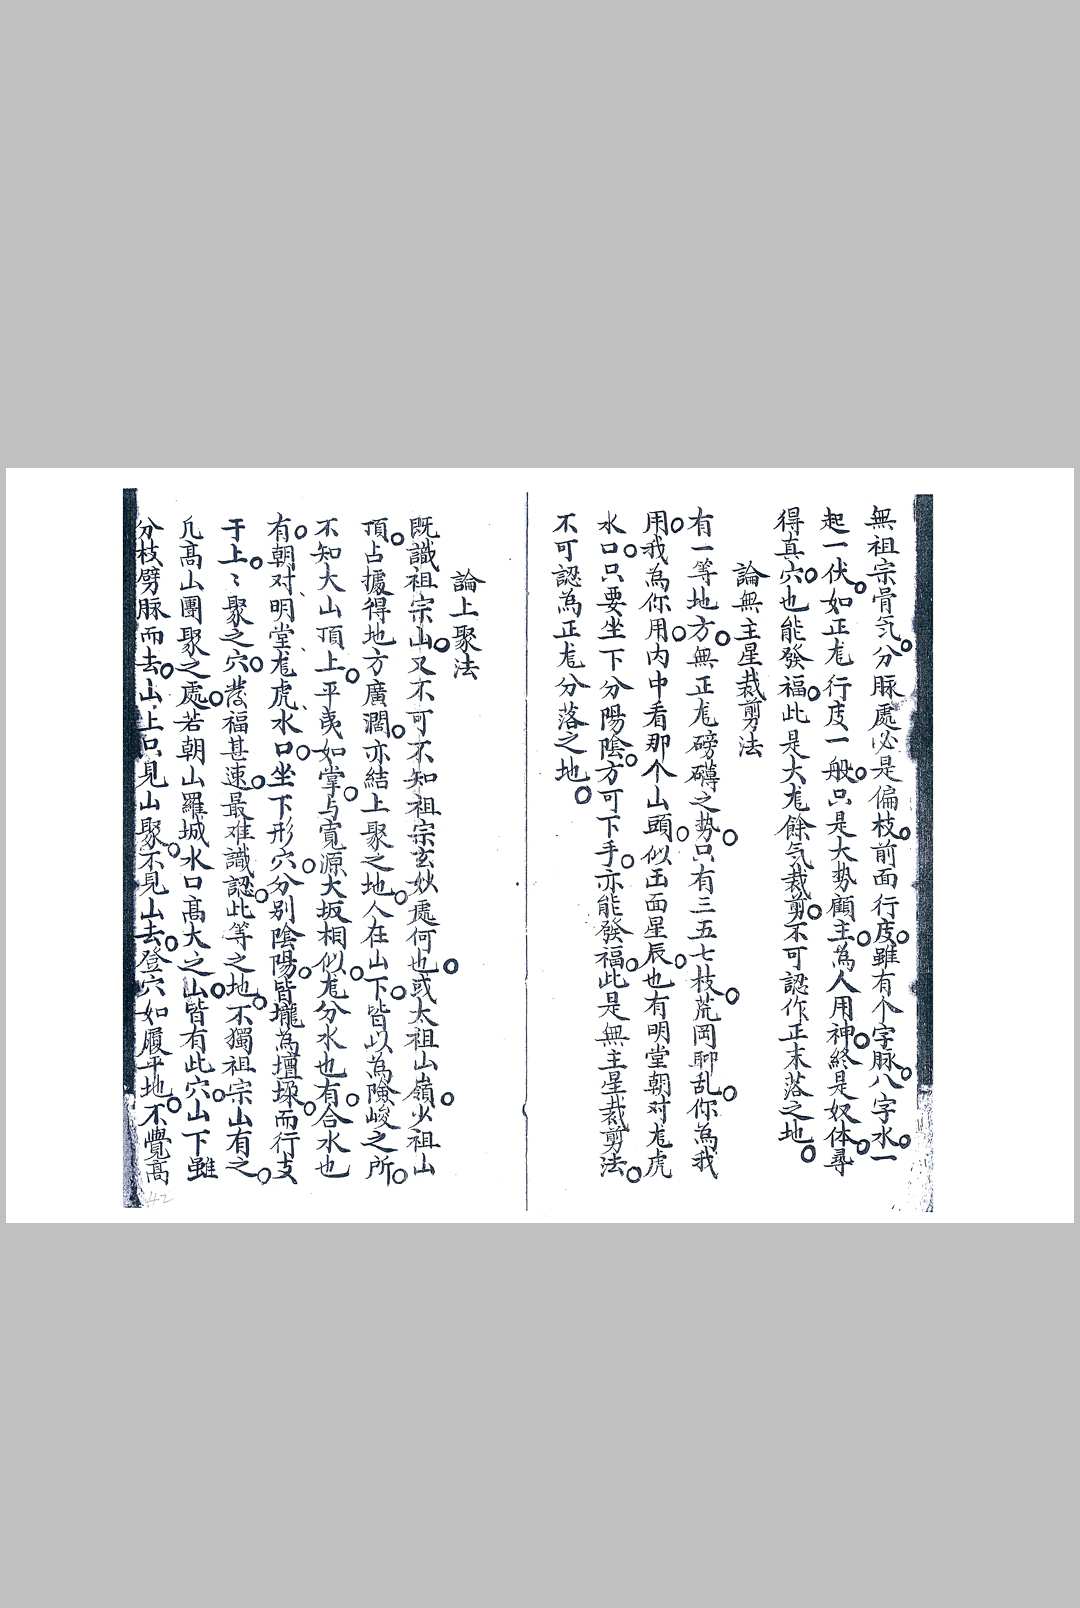 無祖宗骨気分脉處必是偏枝前面行度雖有个字脉八字水一
起一伏如正尨行度一般只是大勢顧主為人用神終是奴体尋
得真穴也能發福此是大尨餘気裁剪不可認作正末落之地
論無主星裁剪法
有一等地方無正尨磅礴之勢只有三五七枝荒岡聊乱你為我
用我為你用内中看那个山頭似玉面星辰也有明堂朝对尨虎
水口只要坐下分陽陰方可下手亦能發福此是無主星裁剪法
不可認為正尨分落之地
論上聚法
既識祖宗山又不可不知祖宗玄妙處何也或太祖山嶺少祖山
頂占據得地方廣濶亦結上聚之地人在山下皆以為險峻之所
不知大山頂上平夷如掌与寬源大坂相似尨分水也有合水也
有朝对明堂尨虎水口坐下形穴分别陰陽皆壠為壇墎而行支
于上〻聚之穴發福甚速最难識認此等之地不獨祖宗山有之
凢髙山團聚之處若朝山羅城水口髙大之山皆有此穴山下雖
分枝劈脉而去山上只見山聚不見山去登穴如履平地不覺髙
42